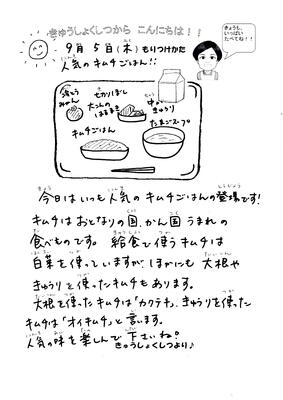 きゅうしょくしつから こんにちは!!
きょうも、
いっぱい
たべてね!!
9月5日(木) もりつけかた
人気のキムチごはん!!
冷とう
みかん
せわりぼし
大こんの
はるまき
牛にゅう
キムチごはん
たまごスープ
今日はいつも人気のキムチごはんの登場です!
キムチはおとなりの国、かん国うまれの
食べものです。給食で使うキムチは
白菜を使っていますが、ほかにも大根や
きゅうりを使ったキムチもあります。
大根を使ったキムチは「カクテキ」、きゅうりを使った
キムチは「オイキムチ」と言います。
人気の味を楽しんで下さいね?
きゅうしょくしつより♪